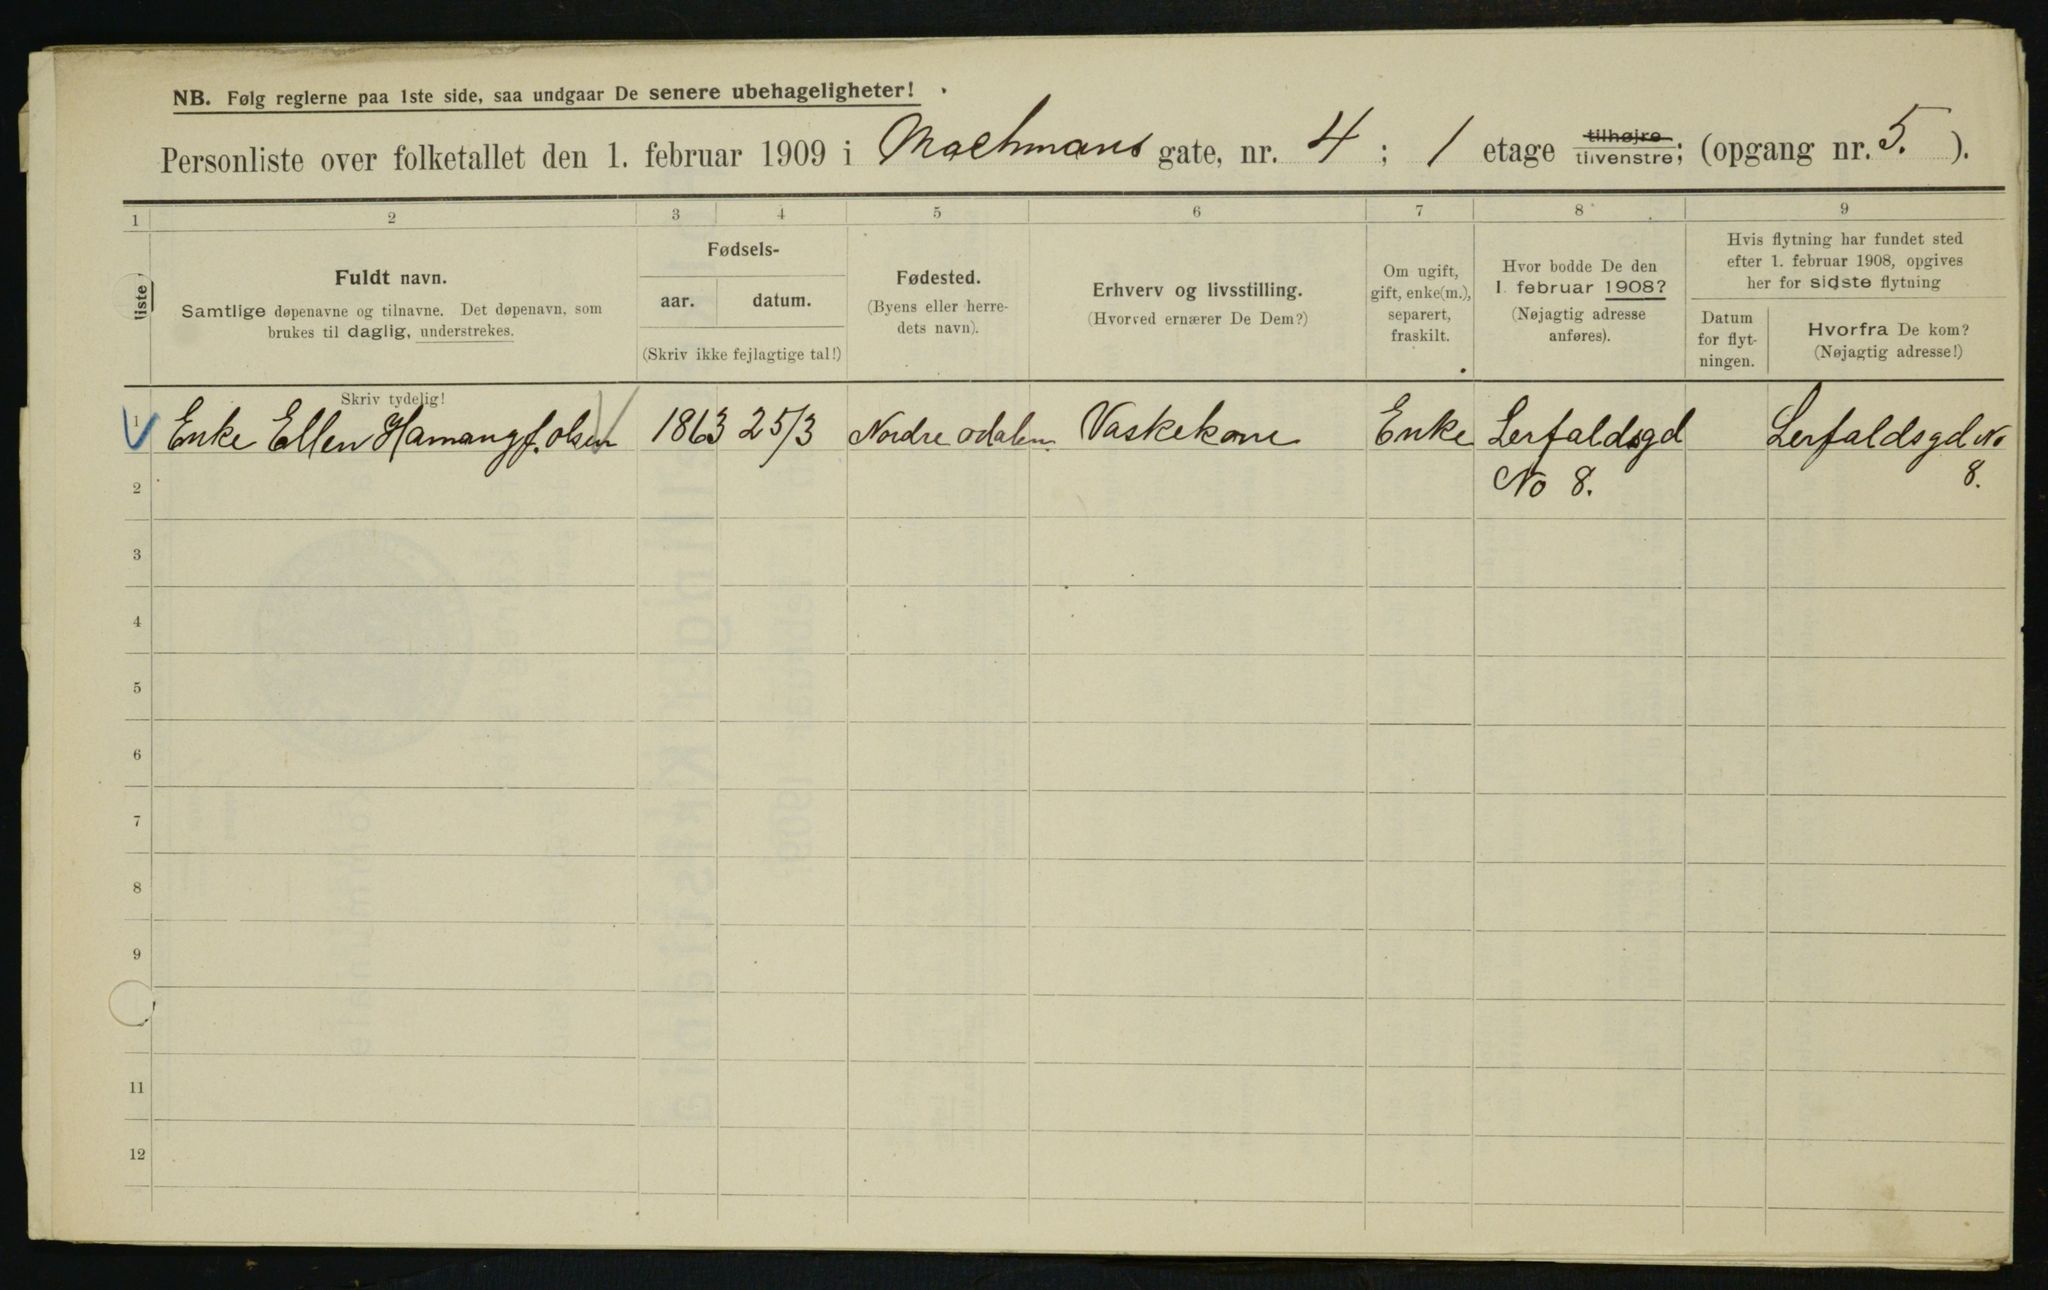 NB. Følg reglerne paa 1ste side, saa undgaar De senere ubehageligheter!
Personliste over folketallet den 1. februar 1909 i Maehmans gate, nr. 4 ; 1 etage tilhøjre tilvenstre; (opgang nr. 5. ).
1 2 3 4 5 6 7 8 9
liste
Fuldt navn.
Samtlige døpenavne og tilnavne. Det døpenavn, som
brukes til daglig, understrekes.
Fødsels-
aar. datum.
(Skriv ikke fejlagtige tal!)
Fødested.
(Byens eller herre-
dets navn).
Erhverv og livsstilling.
(Hvorved ernærer De Dem?)
Om ugift,
gift, enke(m.),
separert,
fraskilt.
Hvor bodde De den
1. februar 1908?
(Nøjagtig adresse
anføres).
Hvis flytning har fundet sted
efter 1. februar 1908, opgives
her for sidste flytning
Datum
for flyt-
ningen.
Hvorfra De kom?
(Nøjagtig adresse!)
Skriv tydelig!
1 Enke Ellen Hamang f. olsen 1863 25/3 Nordre odalen Vaskekone Enke Lerfaldsgd Lerfaldsgd No
2 No 8. 8.
3
4
5
6
7
8
9
11
12